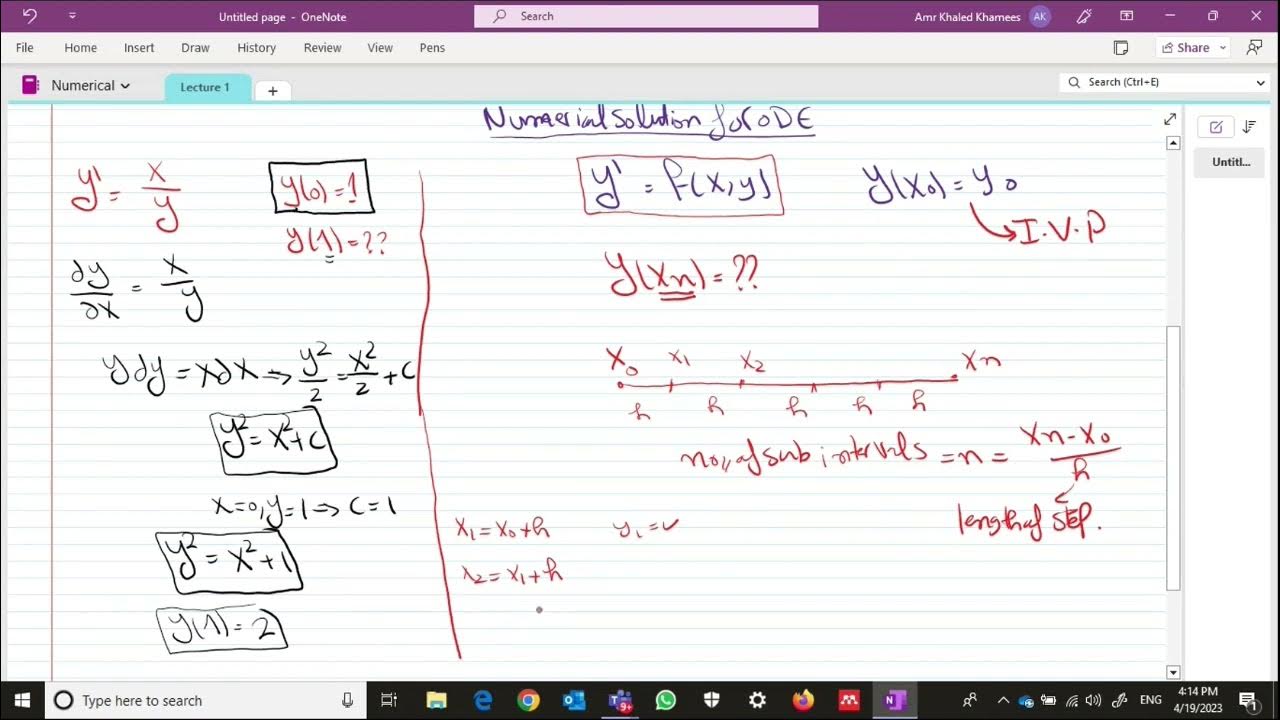 Untitled page - OneNote
Search
Amr Khaled Khamees
AK
File Home Insert Draw History Review View Pens
Share
Numerical
Lecture 1
+
Search (Ctrl+E)
Untitl...
Numerical Solution for ODE
y' = x/y
y(0) = 1
y(1) = ??
∂y/∂x = x/y
y dy = x ∂x ⇒ y²/2 = x²/2 + c
y² = x² + c
x=0, y=1 ⇒ c=1
y² = x² + 1
y(1) = 2
y' = f(x,y)
y(x₀) = y₀
I.V.P
y(xn) = ??
x₀ x₁ x₂ xn
h h h h h
no,, of sub intervals = n = (xn - x₀)/h
length of step.
x₁ = x₀ + h
y₁ = ✓
x₂ = x₁ + h
Type here to search
9+
ENG
4:14 PM
4/19/2023
1